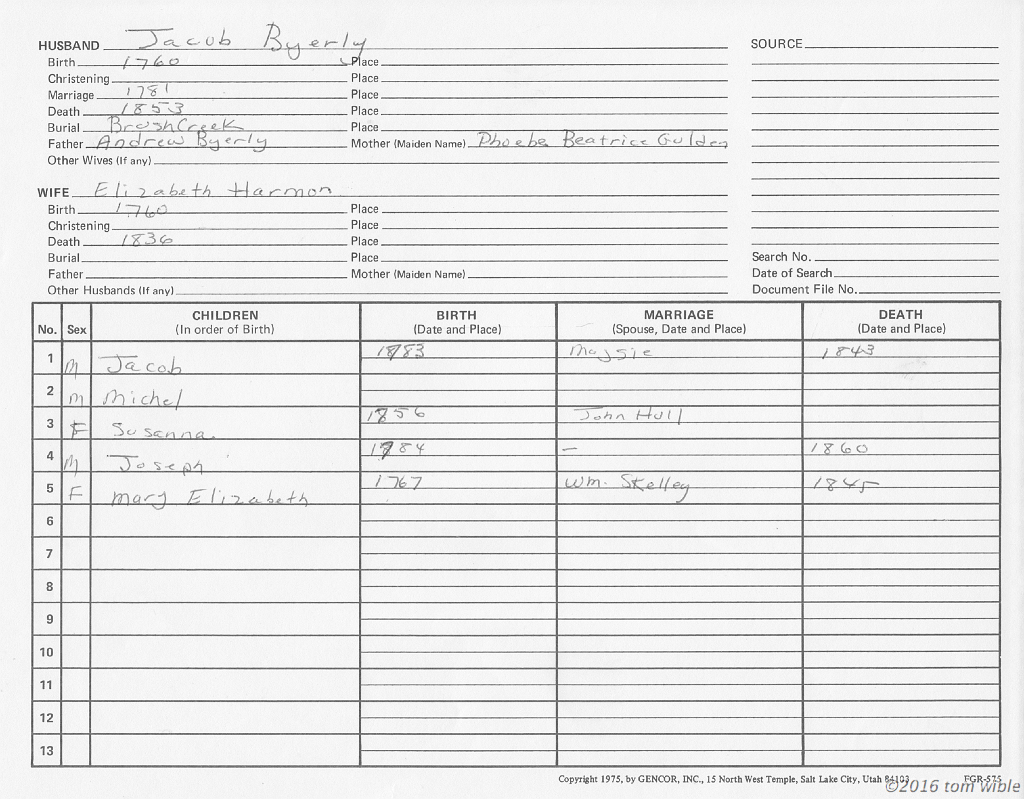 HUSBAND Jacob Byerly
Birth 1760 Place
Christening Place
Marriage 1781 Place
Death 1853 Place
Burial BrushCreek Place
Father Andrew Byerly Mother (Maiden Name) Phoebe Beatrice Gulden
Other Wives (If any)
SOURCE
WIFE Elizabeth Harmon
Birth 1760 Place
Christening Place
Death 1836 Place
Burial Place
Father Mother (Maiden Name)
Other Husbands (If any)
Search No.
Date of Search
Document File No.
No. Sex CHILDREN (In order of Birth) BIRTH (Date and Place) MARRIAGE (Spouse, Date and Place) DEATH (Date and Place)
1 M Jacob 1783 1843
2 M Michel
3 F Susanna. 1856 John Hull
4 M Joseph 1784 – 1860
5 F Mary Elizabeth 1767 Wm. Skelley 1845
6
7
8
9
10
11
12
13
Copyright 1975, by GENCOR, INC., 15 North West Temple, Salt Lake City, Utah 84103 FGR-575
©2016 tom wible